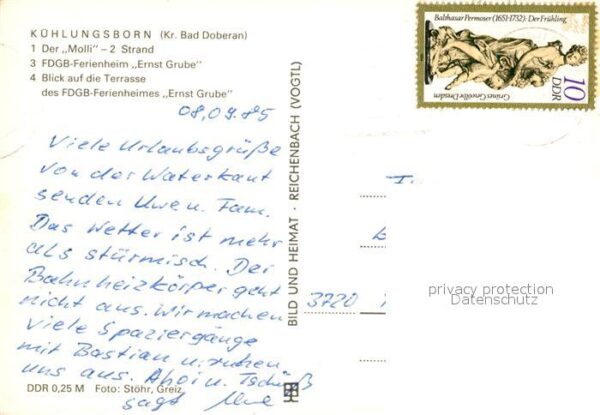 KÜHLUNGSBORN (Kr. Bad Doberan)
1 Der „Molli“ – 2 Strand
3 FDGB-Ferienheim „Ernst Grube“
4 Blick auf die Terrasse
des FDGB-Ferienheimes „Ernst Grube“
08.09.85
Viele Urlaubsgrüße
von der Waterkant
senden Uwe u. Fam.
Das Wetter ist mehr
als stürmisch. Der
Bahnheizkörper geht
nicht aus. Wir machen
viele Spaziergänge
mit Bastian u. ruhen
uns aus. Ahoi u. Tschüß
sagt Uwe
DDR 0,25 M Foto: Stöhr, Greiz
BILD UND HEIMAT · REICHENBACH (VOGTL)
Balthasar Permoser (1651-1732): Der Frühling
10
DDR
Grünes Gewölbe Dresden
3720
privacy protection
Datenschutz